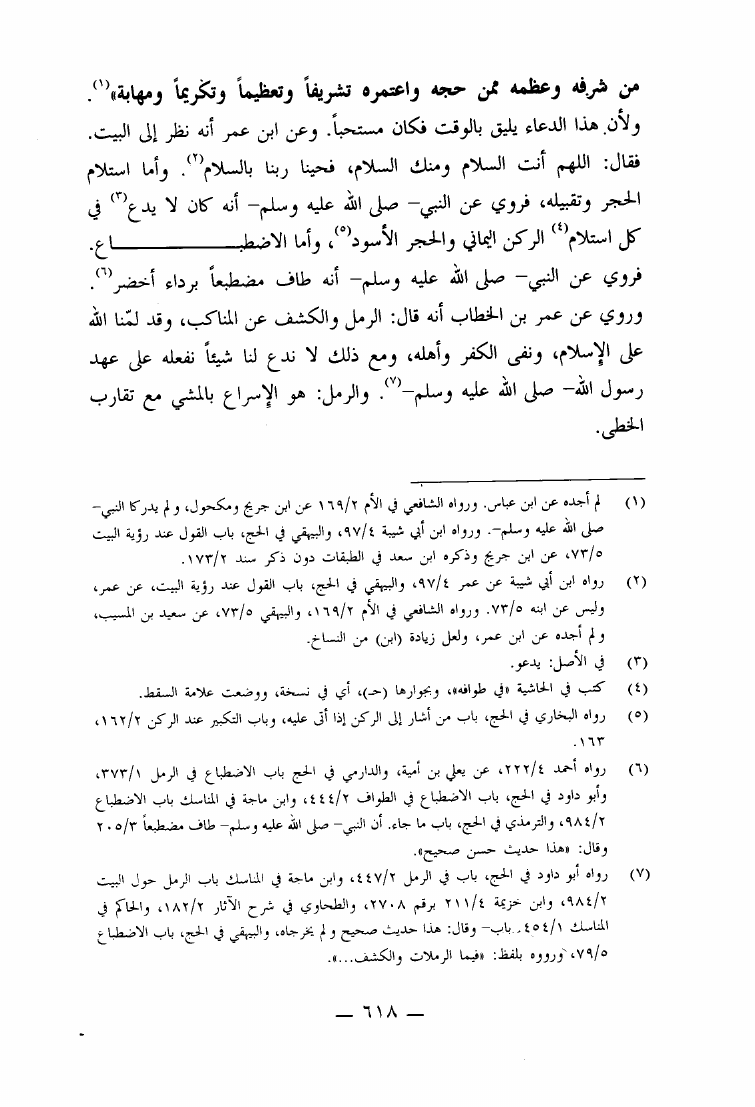 من شرفه وعظمه ممن حجه واعتمره تشريفاً وتعظيماً وتكريماً ومهابة»(١).
ولأن هذا الدعاء يليق بالوقت فكان مستحباً. وعن ابن عمر أنه نظر إلى البيت.
فقال: اللهم أنت السلام ومنك السلام، فحينا ربنا بالسلام(٢). وأما استلام
الحجر وتقبيله، فروي عن النبي– صلى الله عليه وسلم– أنه كان لا يدع(٣) في
كل استلام(٤) الركن اليماني والحجر الأسود(٥)، وأما الاضطبـــــــــــــاع.
فروي عن النبي– صلى الله عليه وسلم– أنه طاف مضطبعاً برداء أخضر(٦).
وروي عن عمر بن الخطاب أنه قال: الرمل والكشف عن المناكب، وقد لمّنا الله
على الإسلام، ونفى الكفر وأهله، ومع ذلك لا ندع لنا شيئاً نفعله على عهد
رسول الله– صلى الله عليه وسلم–(٧). والرمل: هو الإسراع بالمشي مع تقارب
الخطى.
(١) لم أجده عن ابن عباس. ورواه الشافعي في الأم ١٦٩/٢ عن ابن جريج ومكحول، ولم يدركا النبي–
صلى الله عليه وسلم–. ورواه ابن أبي شيبة ٩٧/٤، والبيهقي في الحج، باب القول عند رؤية البيت
٧٣/٥، عن ابن جريج وذكره ابن سعد في الطبقات دون ذكر سند ١٧٣/٢.
(٢) رواه ابن أبي شيبة عن عمر ٩٧/٤، والبيهقي في الحج، باب القول عند رؤية البيت، عن عمر،
وليس عن ابنه ٧٣/٥. ورواه الشافعي في الأم ١٦٩/٢، والبيهقي ٧٣/٥، عن سعيد بن المسيب،
ولم أجده عن ابن عمر، ولعل زيادة (ابن) من النساخ.
(٣) في الأصل: يدعو.
(٤) كتب في الحاشية «في طوافه»، وبجوارها (حـ)، أي في نسخة، ووضعت علامة السقط.
(٥) رواه البخاري في الحج، باب من أشار إلى الركن إذا أتى عليه، وباب التكبير عند الركن ١٦٢/٢،
١٦٣.
(٦) رواه أحمد ٢٢٢/٤، عن يعلي بن أمية، والدارمي في الحج باب الاضطباع في الرمل ٣٧٣/١،
وأبو داود في الحج، باب الاضطباع في الطواف ٤٤٤/٢، وابن ماجة في المناسك باب الاضطباع
٩٨٤/٢، والترمذي في الحج، باب ما جاء. أن النبي– صلى الله عليه وسلم– طاف مضطبعاً ٢٠٥/٣
وقال: «هذا حديث حسن صحيح».
(٧) رواه أبو داود في الحج، باب في الرمل ٤٤٧/٢، وابن ماجة في المناسك باب الرمل حول البيت
٩٨٤/٢، وابن خزيمة ٢١١/٤ برقم ٢٧٠٨، والطحاوي في شرح الآثار ١٨٢/٢، والحاكم في
المناسك ٤٥٤/١. باب– وقال: هذا حديث صحيح ولم يخرجاه، والبيهقي في الحج، باب الاضطباع
٧٩/٥، ورووه بلفظ: «فيما الرملات والكشف...».
— ٦١٨ —